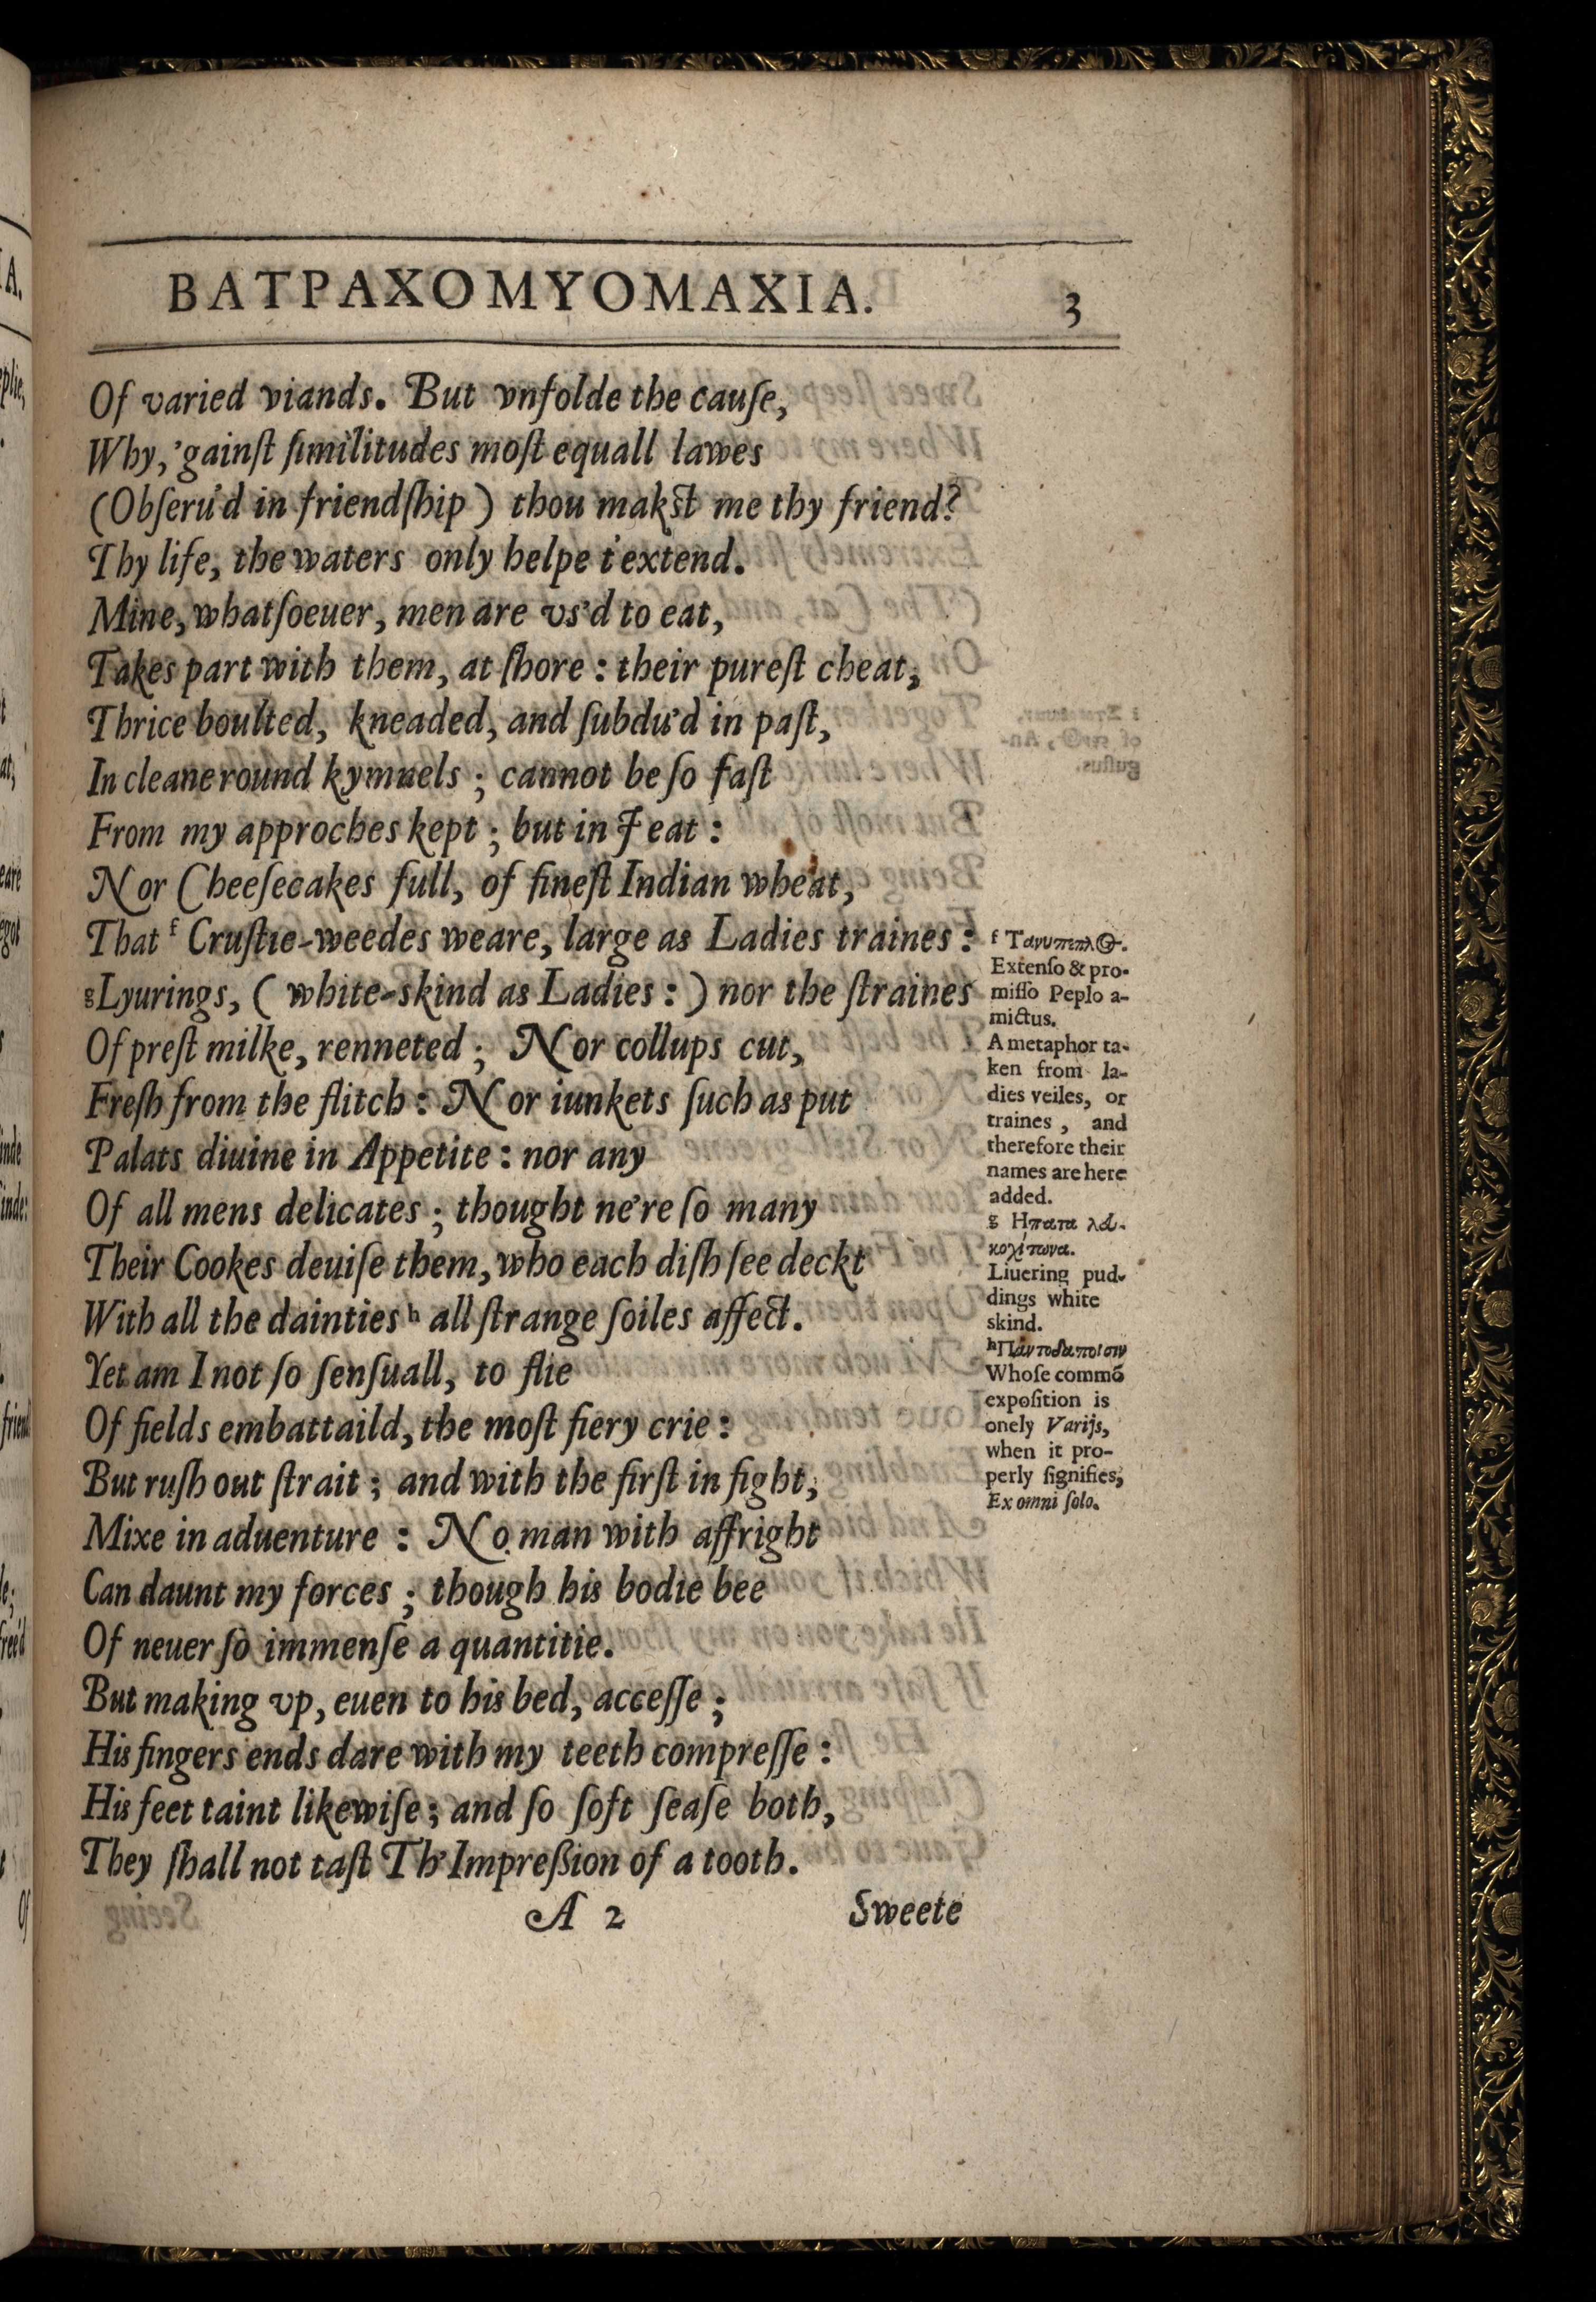 ΒΑΤΡΑΧΟΜΥΟΜΑΧΙΑ. 3
Of varied viands. But vnfolde the cauſe,
Why, 'gainſt ſimilitudes moſt equall lawes
(Obſeru'd in friendſhip) thou makſt me thy friend?
Thy life, the waters only helpe t'extend.
Mine, whatſoeuer, men are vs'd to eat,
Takes part with them, at ſhore: their pureſt cheat,
Thrice boulted, kneaded, and ſubdu'd in paſt,
In cleane round kymnels; cannot be ſo faſt
From my approches kept; but in I eat:
Nor Cheeſecakes full, of fineſt Indian wheat,
That f Cruſtie-weedes weare, large as Ladies traines:
g Lyurings, (white-skind as Ladies:) nor the ſtraines
Of preſt milke, renneted; Nor collups cut,
Freſh from the flitch: Nor iunkets ſuch as put
Palats diuine in Appetite: nor any
Of all mens delicates; thought ne're ſo many
Their Cookes deuiſe them, who each diſh ſee deckt
With all the dainties h all ſtrange ſoiles affect.
Yet am I not ſo ſenſuall, to flie
Of fields embattaild, the moſt fiery crie:
But ruſh out ſtrait; and with the firſt in fight,
Mixe in aduenture: No man with affright
Can daunt my forces; though his bodie bee
Of neuer ſo immenſe a quantitie.
But making vp, euen to his bed, acceſſe;
His fingers ends dare with my teeth compreſſe:
His feet taint likewiſe; and ſo ſoft ſeaſe both,
They ſhall not taſt Th'Impreßion of a tooth.
A 2 Sweete
f Τανυπεπλος.
Extenſo & pro-
miſſo Peplo a-
mictus.
A metaphor ta-
ken from la-
dies veiles, or
traines, and
therefore their
names are here
added.
g Ηπατα λευ-
κοχίτωνα.
Liuering pud-
dings white
skind.
h Πάντοδαποῖσιν
Whoſe commō
expoſition is
onely Varijs,
when it pro-
perly ſignifies,
Ex omni ſolo.